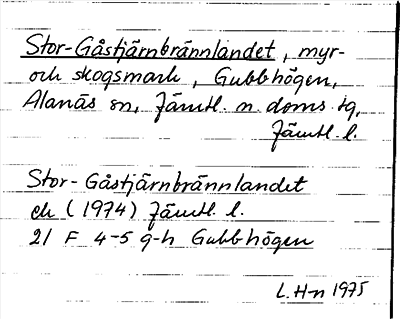 Stor-Gåstjärnbrännlandet, myr-
och skogsmark, Gubbhögen,
Alanäs sn, Jämtl. n. doms. tg,
Jämtl. l.
Stor-Gåstjärnbrännlandet
ek (1974) Jämtl. l.
21 F 4-5 g-h Gubbhögen
L. H-n 1975